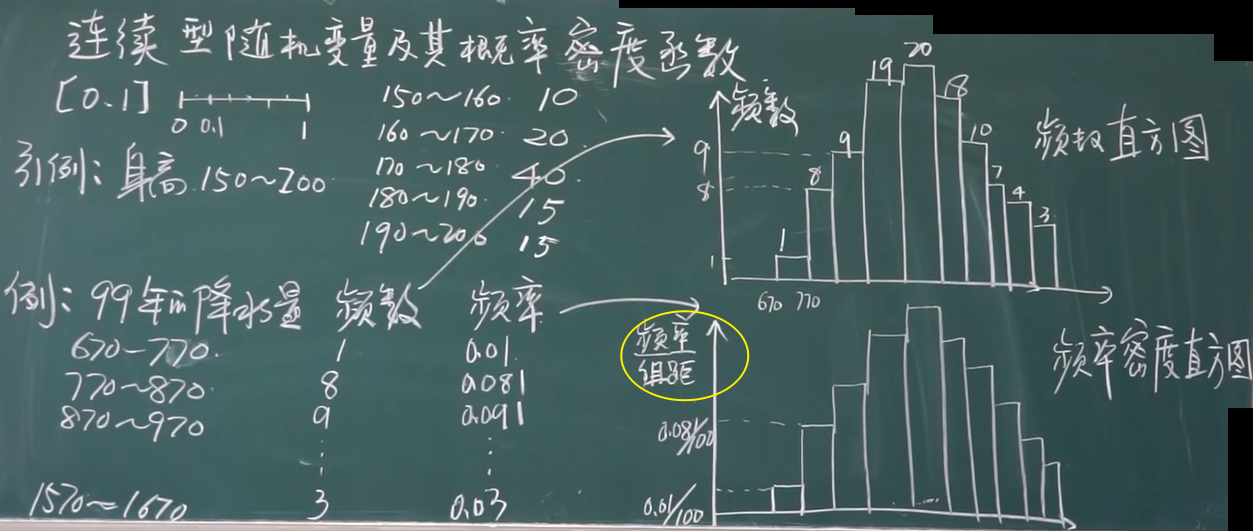 连续型随机变量及其概率密度函数
[0.1]
0 0.1 1
引例: 身高 150~200
150~160 10
160~170 20
170~180 40
180~190 15
190~200 15
例: 99年的降水量 频数 频率
670~770 1 0.01
770~870 8 0.081
870~970 9 0.091
⋮ ⋮
1570~1670 3 0.03
频数
9
8
1
1 8 9 19 20 18 10 7 4 3
670 770
频数直方图
频率
组距
0.08/100
0.01/100
频率密度直方图